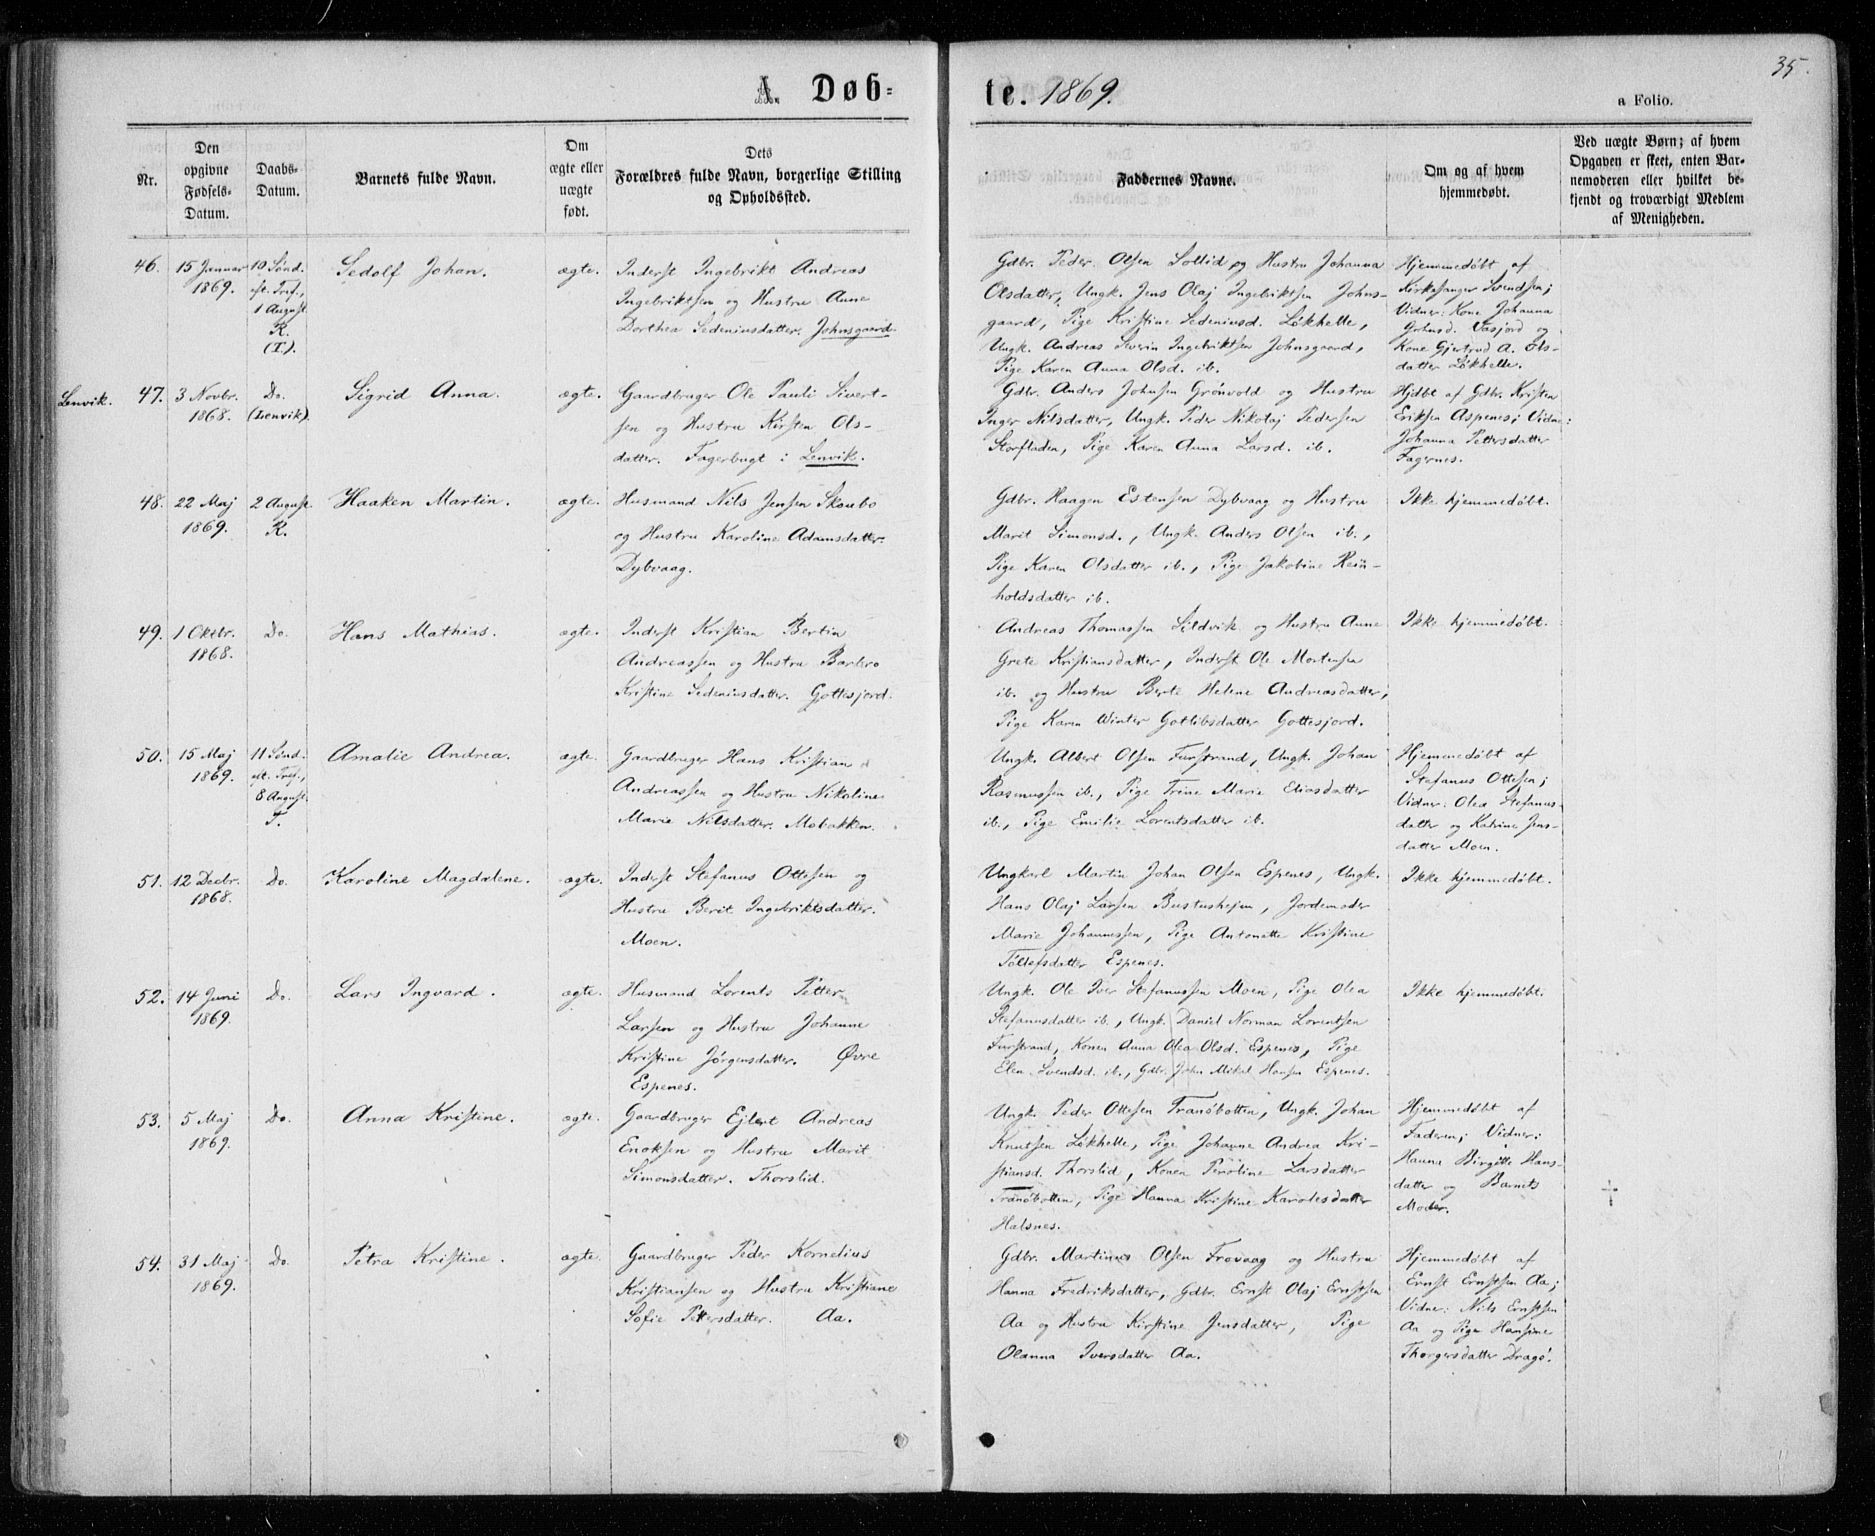 35.
A. Døb-
te. 1869.
a Folio.
Nr.
Den
opgivne
Fødsels-
Datum.
Daabs-
Datum.
Barnets fulde Navn.
Om
ægte eller
uægte
født.
Dets
Forældres fulde Navn, borgerlige Stilling
og Opholdssted.
Faddernes Navne.
Om og af hvem
hjemmedøbt.
Ved uægte Børn; af hvem
Opgaven er skeet, enten Bar-
nemoderen eller hvilket be-
kjendt og troværdigt Medlem
af Menigheden.
46.
15 Januar
1869.
10 Sønd.
eft. Tref.,
1 August
R.
(T).
Sedolf Johan.
ægte.
Inderst Ingebrikt Andreas
Ingebriktsen og Hustru Anne
Dorthea Sedeniusdatter. Johnsgaard.
Gdbr. Peder Olsen Sollid og Hustru Johanna
Olsdatter, Ungk. Jens Olaj Ingebriktsen Johns-
gaard, Pige Kristine Sedeniusd. Løkhelle,
Ungk. Andreas Severin Ingebriktsen Johnsgaard,
Pige Karen Anna Olsd. ib.
Hjemmedøbt af
Kirkesanger Svendsen;
Vidner: Kone Johanna
Vasjord og
Kone Gjertrud A. Ols-
datter Løkhelle.
Lenvik.
47.
3 Novbr.
1868.
Do.
(Lenvik).
Sigrid Anna.
ægte.
Gaardbruger Ole Pauli Sivert-
sen og Hustru Kirsten Ols-
datter. Fagerbugt i Lenvik.
Gdbr. Anders Johnsen Grønvold og Hustru
Inger Nilsdatter, Ungk. Peder Nikolaj Pedersen
Storfladen, Pige Karen Anna Larsd. ib.
Hjdbt af Gdbr. Kristen
Eriksen Aspenes; Vidne:
Johanna Pettersdatter
Fagernes.
48.
22 Maj
1869.
2 August
R.
Haaken Martin.
ægte.
Husmand Nils Jensen Skoubo
og Hustru Karoline Adamsdatter.
Dybvaag.
Gdbr. Haagen Estensen Dybvaag og Hustru
Marit Simonsd., Ungk. Anders Olsen ib.,
Pige Karen Olsdatter ib., Pige Jakobine Rein-
holdsdatter ib.
Ikke hjemmedøbt.
49.
1 Oktbr.
1868.
Do.
Hans Mathias.
ægte.
Inderst Kristian Bertin
Andreassen og Hustru Barbro
Kristine Sedeniusdatter. Gottesjord.
Andreas Thomassen Sildvik og Hustru Anne
Grete Kristiansdatter, Inderst Ole Mortensen
ib. og Hustru Berte Helene Andreasdatter,
Pige Karen Winter Gotlibsdatter Gottesjord.
Ikke hjemmedøbt.
50.
15 Maj
1869.
11 Sønd.
eft. Tref.,
8 August.
T.
Amalie Andrea.
ægte.
Gaardbruger Hans Kristian
Andreassen og Hustru Nikoline
Marie Nilsdatter. Mobakken.
Ungk. Albert Olsen Furstrand, Ungk. Johan
Rasmussen ib., Pige Trine Marie Eliasdatter
ib., Pige Emilie Lorentsdatter ib.
Hjemmedøbt af
Stefanus Ottesen;
Vidner: Olea Stefanus-
datter og Katrine Jens-
datter Moen.
51.
12 Decbr.
1868.
Do.
Karoline Magdalene.
ægte.
Inderst Stefanus Ottesen og
Hustru Berit Ingebriktsdatter.
Moen.
Ungkarl Martin Johan Olsen Espenes, Ungk.
Hans Olaj Larsen Bustushejen, Jordemoder
Marie Johannessen, Pige Antonette Kristine
Tollefsdatter Espenes.
Ikke hjemmedøbt.
52.
14 Juni
1869.
Do.
Lars Ingvard.
ægte.
Husmand Lorents Petter
Larsen og Hustru Johanne
Kristine Jørgensdatter. Øvre
Espenes.
Ungk. Ole Iver Stefanussen Moen, Pige Olea
Stefanusdatter ib., Ungk. Daniel Norman Lorentsen
Furstrand, Konen Anna Olea Olsd. Espenes, Pige
Elen Svendsd. ib., Gdbr. John Mikal Hansen Espenes.
Ikke hjemmedøbt.
53.
5 Maj
1869.
Do.
Anna Kristine.
ægte.
Gaardbruger Ejlert Andreas
Enoksen og Hustru Marit
Simonsdatter. Thorslid.
Ungk. Peder Ottesen Tranøbotten, Ungk. Johan
Knutsen Løkhelle, Pige Johanne Andrea Kri-
stiansd. Thorslid, Konen Peroline Larsdatter
Tranøbotten, Pige Hanna Kristine Karolesdatter
Halsnes.
Hjemmedøbt af
Faderen; Vidner:
Hanna Birgitte Hans-
datter og Barnets
Moder.
†
54.
31 Maj
1869.
Do.
Petra Kristine.
ægte.
Gaardbruger Peder Kornelius
Kristiansen og Hustru Kristiane
Sofie Pettersdatter. Aa.
Gdbr. Martinus Olsen Frovaag og Hustru
Hanna Fredriksdatter, Gdbr. Ernst Olaj Ernstsen
Aa og Hustru Kirstine Jensdatter, Pige
Olanna Iversdatter Aa.
Hjemmedøbt af
Ernst Ernstsen Aa;
Vidner: Nils Ernstsen
Aa og Pige Hansine
Thorgersdatter Dragø.